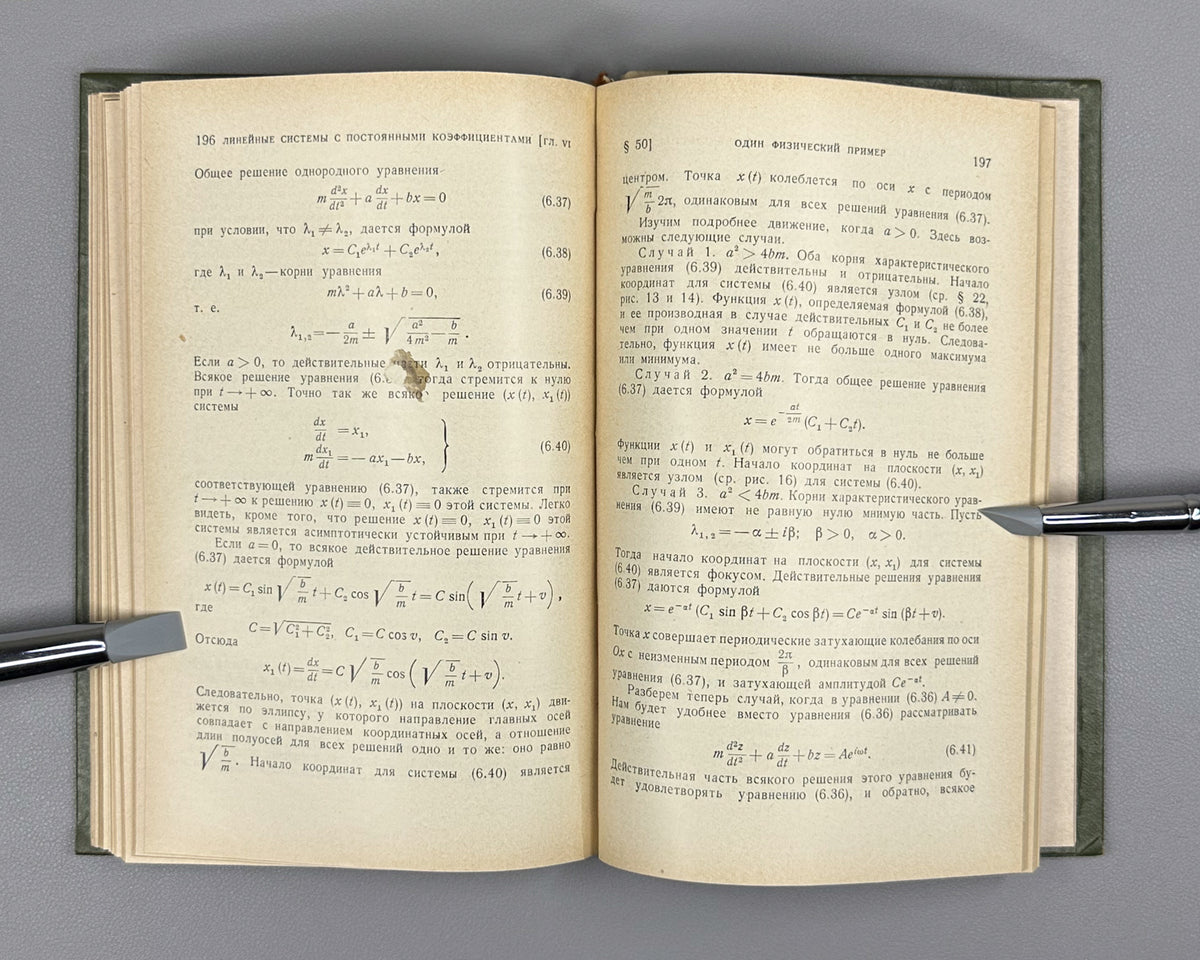 196 ЛИНЕЙНЫЕ СИСТЕМЫ С ПОСТОЯННЫМИ КОЭФФИЦИЕНТАМИ [ГЛ. VI
Общее решение однородного уравнения
m d²x/dt² + a dx/dt + bx = 0 (6.37)
при условии, что λ₁ ≠ λ₂, дается формулой
x = C₁e^{λ₁t} + C₂e^{λ₂t}, (6.38)
где λ₁ и λ₂ — корни уравнения
mλ² + aλ + b = 0, (6.39)
т. е.
λ₁,₂ = − a/2m ± √(a²/4m² − b/m).
Если a > 0, то действительные части λ₁ и λ₂ отрицательны.
Всякое решение уравнения (6. тогда стремится к нулю
при t → + ∞. Точно так же всяко решение (x (t), x₁ (t))
системы
dx/dt = x₁,
m dx₁/dt = − ax₁ − bx, } (6.40)
соответствующей уравнению (6.37), также стремится при
t → + ∞ к решению x (t) ≡ 0, x₁ (t) ≡ 0 этой системы. Легко
видеть, кроме того, что решение x (t) ≡ 0, x₁ (t) ≡ 0 этой
системы является асимптотически устойчивым при t → + ∞.
Если a = 0, то всякое действительное решение уравнения
(6.37) дается формулой
x (t) = C₁ sin √(b/m) t + C₂ cos √(b/m) t = C sin (√(b/m) t + v),
где
C = √(C₁² + C₂²), C₁ = C cos v, C₂ = C sin v.
Отсюда
x₁ (t) = dx/dt = C √(b/m) cos (√(b/m) t + v).
Следовательно, точка (x (t), x₁ (t)) на плоскости (x, x₁) дви-
жется по эллипсу, у которого направление главных осей
совпадает с направлением координатных осей, а отношение
длин полуосей для всех решений одно и то же: оно равно
√(b/m). Начало координат для системы (6.40) является
§ 50] ОДИН ФИЗИЧЕСКИЙ ПРИМЕР 197
центром. Точка x (t) колеблется по оси x с периодом
√(m/b) 2π, одинаковым для всех решений уравнения (6.37).
Изучим подробнее движение, когда a > 0. Здесь воз-
можны следующие случаи.
Случай 1. a² > 4bm. Оба корня характеристического
уравнения (6.39) действительны и отрицательны. Начало
координат для системы (6.40) является узлом (ср. § 22,
рис. 13 и 14). Функция x (t), определяемая формулой (6.38),
и ее производная в случае действительных C₁ и C₂ не более
чем при одном значении t обращаются в нуль. Следова-
тельно, функция x (t) имеет не больше одного максимума
или минимума.
Случай 2. a² = 4bm. Тогда общее решение уравнения
(6.37) дается формулой
x = e^{−at/2m} (C₁ + C₂t).
Функции x (t) и x₁ (t) могут обратиться в нуль не больше
чем при одном t. Начало координат на плоскости (x, x₁)
является узлом (ср. рис. 16) для системы (6.40).
Случай 3. a² < 4bm. Корни характеристического урав-
нения (6.39) имеют не равную нулю мнимую часть. Пусть
λ₁,₂ = − α ± iβ; β > 0, α > 0.
Тогда начало координат на плоскости (x, x₁) для системы
(6.40) является фокусом. Действительные решения уравнения
(6.37) даются формулой
x = e^{−αt} (C₁ sin βt + C₂ cos βt) = Ce^{−αt} sin (βt + v).
Точка x совершает периодические затухающие колебания по оси
Ox с неизменным периодом 2π/β, одинаковым для всех решений
уравнения (6.37), и затухающей амплитудой Ce^{−αt}.
Разберем теперь случай, когда в уравнении (6.36) A ≠ 0.
Нам будет удобнее вместо уравнения (6.36) рассматривать
уравнение
m d²z/dt² + a dz/dt + bz = Ae^{iωt}. (6.41)
Действительная часть всякого решения этого уравнения бу-
дет удовлетворять уравнению (6.36), и обратно, всякое